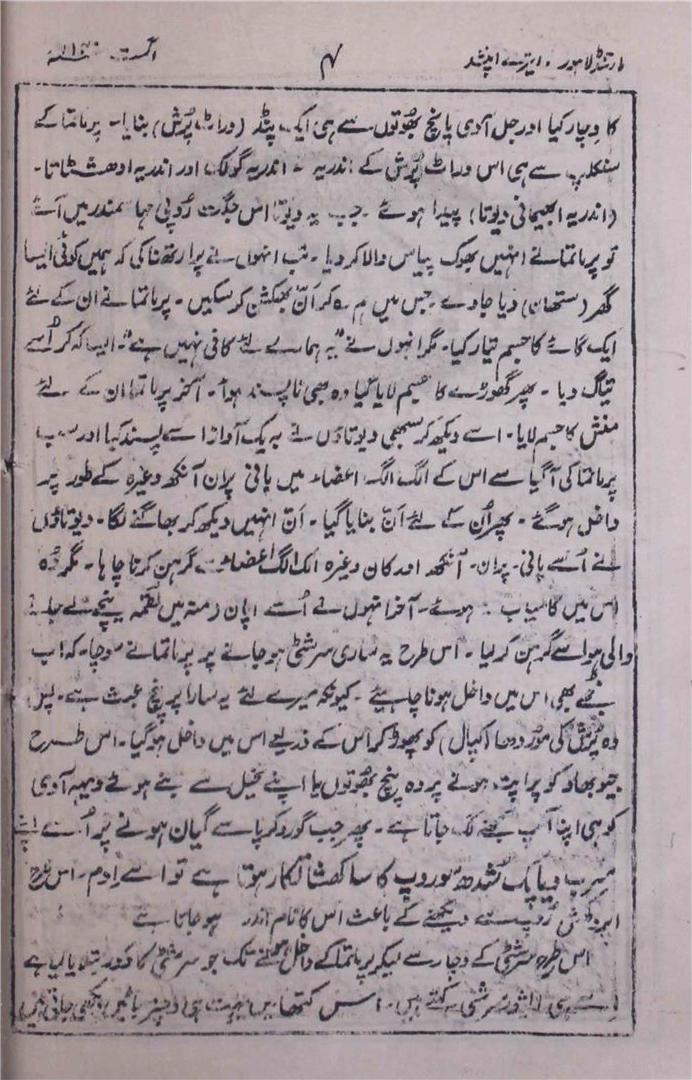 مارتنڈ لاہور۔ ایترے اپنشد ۴ اگست ۱۹۴۰ء
کا وچار کیا اور جل آدی پانچ بھوتوں سے ہی ایک پنڈ (وراٹ پُرش) بنایا۔ پرماتما کے
سنکلپ سے ہی اس وراٹ پُرش کے اندریہ ۔ اندریہ گولک اور اندریہ ادھشٹاتا۔
(اندریہ ابھیمانی دیوتا) پیدا ہوئے ۔ جب یہ دیوتا اس جگت رُوپی مہا سمندر میں آئے
تو پرماتما نے انہیں بھوک پیاس والا کر دیا ۔ تب انہوں نے پرارتھنا کی کہ ہمیں کوئی ایسا
گھر (ستھان) دیا جاوے جس میں ہم رہ کر اَنّ بھکشن کر سکیں ۔ پرماتما نے ان کے لئے
ایک گائے کا جسم تیار کیا۔ مگر انہوں نے "یہ ہمارے لئے کافی نہیں ہے"۔ ایسا کہہ کر اُسے
تیاگ دیا ۔ پھر گھوڑے کا جسم لایا گیا وہ بھی ناپسند ہوا۔ آخر پرماتما ان کے لئے
منش کا جسم لایا۔ اسے دیکھ کر سبھی دیوتاؤں نے بہ یک آواز اسے پسند کیا اور سب
پرماتما کی آگیا سے اس کے الگ الگ اعضاء میں بانی پران آنکھ وغیرہ کے طور پر
داخل ہو گئے ۔ پھر اُن کے لئے اَنّ بنایا گیا ۔ اَنّ انہیں دیکھ کر بھاگنے لگا۔ دیوتاؤں
نے اُسے بانی۔ پران۔ آنکھ اور کان وغیرہ الگ الگ اعضاء سے گرہن کرنا چاہا ۔ مگر وُہ
اس میں کامیاب نہ ہوئے۔ آخر انہوں نے اُسے اپان لقمہ نیچے لے جانے
والی ہوا سے گرہن کر لیا ۔ اس طرح یہ ساری سرشٹی ہو جانے پر پرماتما نے سوچا۔ کہ اب
مجھے بھی اس میں داخل ہونا چاہیئے ۔ کیونکہ میرے لئے یہ سارا پرپنچ عبث ہے۔ پس
وہ پُرش کی مُوردھا (کپال) کو پھوڑ کر اس کے ذریعے اس میں داخل ہو گیا۔ اس طرح
جیو بھاو کو پراپت ہونے پر وہ پنچ بھوتوں یا اپنے تخیل سے بنے ہوئے دیہہ آدی
کو ہی اپنا آپ سمجھنے لگ جاتا ہے ۔ پھر جب گورو کرپا سے گیان ہونے پر اُسے اپنے
سرب ویاپک شُدھ سوروپ کا ساکھشاتکار ہوتا ہے تو اسے اِدم ۔ اس طرح
اپروکش رُوپ سے دیکھنے کے باعث اس کا نام اندر ہو جاتا ہے
اس طرح سرشٹی کے وچار سے لیکر پرماتما کے داخل ہونے تک جو سرشٹی کا بتلایا گیا ہے
اسے ہی ایشور سرشٹی کہتے ہیں۔ اس کتھا میں بہت ہی دلچسپ باتیں دیکھی جاتی ہیں